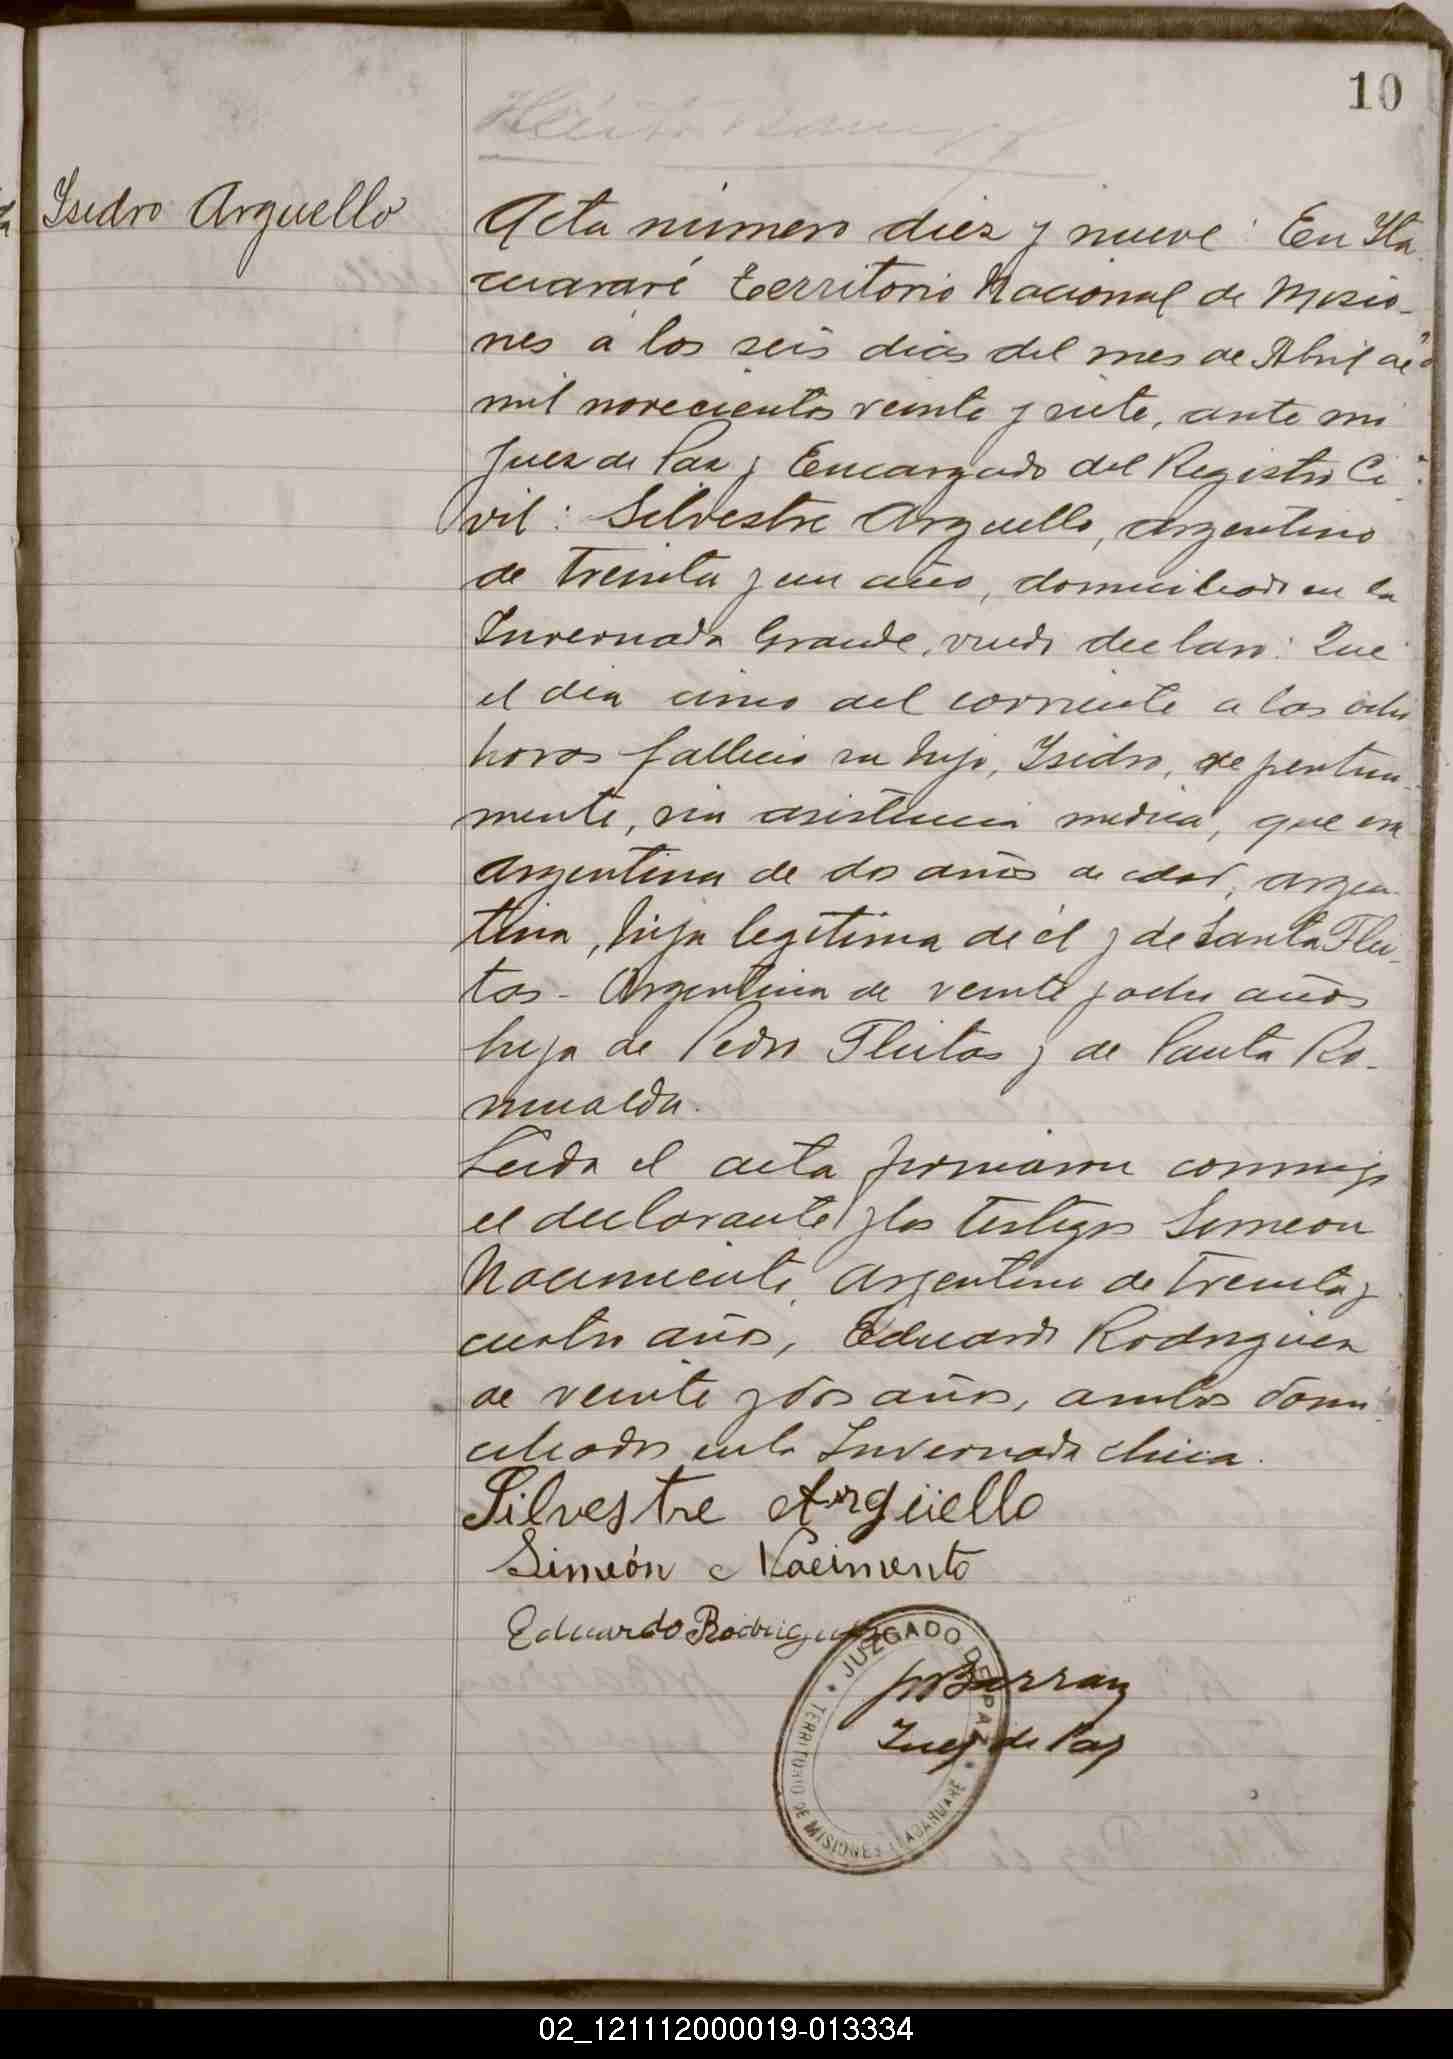 10
Isidro Arguello
Acta número diez y nueve: En Ita
cuararé Territorio Nacional de Misio-
nes á los seis dias del mes de Abril de
mil novecientos veinte y siete, ante mi
Juez de Paz y Encargado del Registro Ci-
vil: Silvestre Arguello, argentino
de treinta y un año, domiciliado en la
Invernada Grande, viudo declaro: Que
el dia cinco del corriente a las ocho
horas fallecio su hijo, Isidro, repentina-
mente, sin asistencia medica, que era
argentina de dos años de edad, argen-
tina, hija legitima de él y de Santa Flei-
tas - Argentina de veinte y ocho años
hija de Pedro Fleitas y de Ro-
mualda.
Leida el acta firmaron conmigo
el declarante y los testigos Simeon
Nacimiento, argentino de treinta y
cuatro años, Eduardo Rodriguez
de veinte y dos años, ambos domi-
ciliados en la Invernada chica.
Silvestre Argüello
Simeón Nacimento
Eduardo Rodriguez
JUZGADO DE PAZ
TERRITORIO DE MISIONES ITACAHUARE
Barran
Juez de Paz
02_121112000019-013334